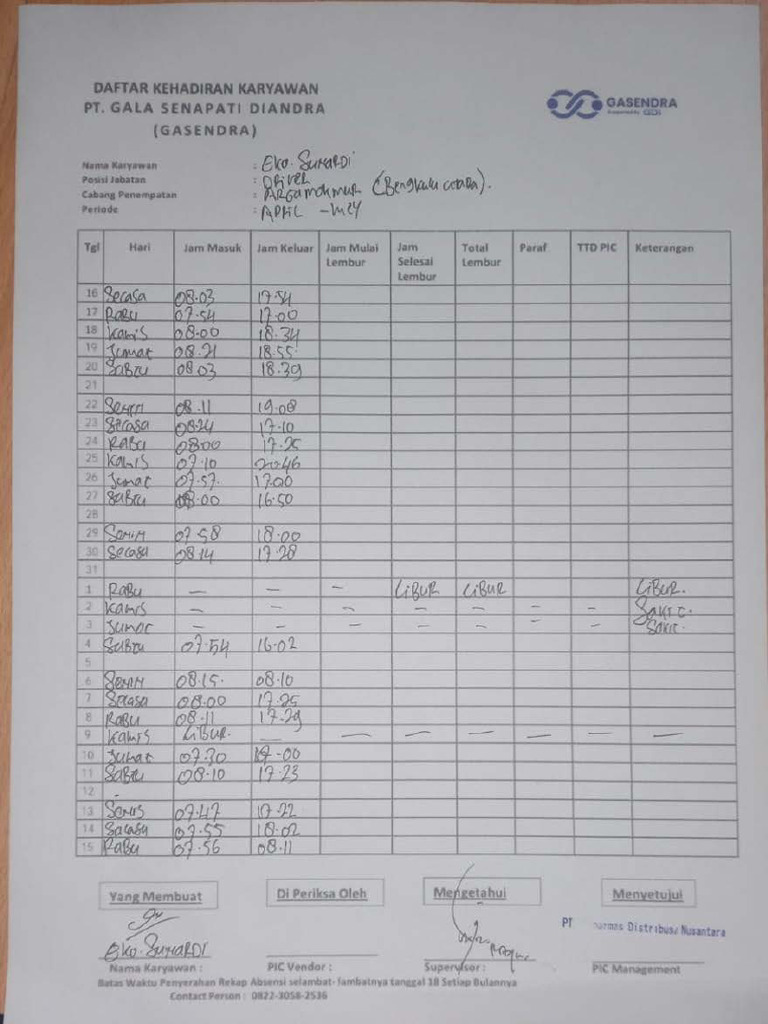 DAFTAR KEHADIRAN KARYAWAN
PT. GALA SENAPATI DIANDRA
(GASENDRA)
GASENDRA
Nama Karyawan : EKO. SUHARDI
Posisi Jabatan : DRIVER
Cabang Penempatan : ARGAMAKMUR (Bengkulu utara).
Periode : APRIL - MEY
Tgl Hari Jam Masuk Jam Keluar Jam Mulai Lembur Jam Selesai Lembur Total Lembur Paraf TTD PIC Keterangan
16 Selasa 08.03 17.54
17 RABU 07.54 17.00
18 Kamis 08.00 18.34
19 Jumat 08.21 18.55
20 SABTU 08.03 18.39
21
22 Senin 08.11 19.08
23 Selasa 08.24 17.10
24 RABU 08.00 17.25
25 Kamis 07.10 20.46
26 Jumat 07.57 17.00
27 SABTU 08.00 16.50
28
29 Senin 07.58 18.00
30 Selasa 08.14 17.28
31
1 RABU - - - LIBUR LIBUR LIBUR.
2 Kamis - - - - - - - SAKIT.
3 Jumat - - - - - - - SAKIT.
4 SABTU 07.54 16.02
5
6 Senin 08.15. 08.10
7 Selasa 08.00 17.25
8 RABU 08.11 17.29
9 Kamis LIBUR. - - - - - - -
10 Jumat 07.30 17.00
11 SABTU 08.10 17.23
12 -
13 Senin 07.47 17.22
14 Selasa 07.55 18.02
15 RABU 07.56 08.11
Yang Membuat Di Periksa Oleh Mengetahui Menyetujui
PT Distribusi Nusantara
EKO. SUHARDI
Nama Karyawan : PIC Vendor : Supervisor : PIC Management
Batas Waktu Penyerahan Rekap Absensi selambat- lambatnya tanggal 18 Setiap Bulannya
Contact Person : 0822-3058-2536